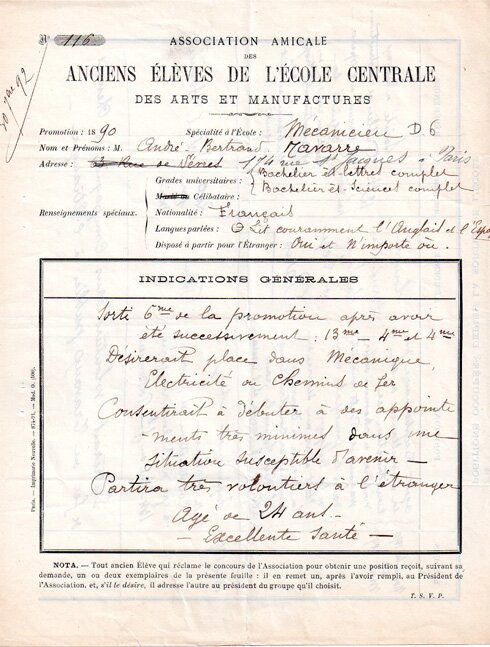 N° 116
ASSOCIATION AMICALE
DES
ANCIENS ÉLÈVES DE L'ÉCOLE CENTRALE
DES ARTS ET MANUFACTURES
92
Promotion : 1890 Spécialité à l'École : Mécanicien D 6
Nom et Prénoms : M. André-Bertrand Navarre
Adresse : Rue de Sèvres 174 rue St Jacques à Paris
Grades universitaires : Bachelier ès-lettres complet
Bachelier ès-Sciences complet
Célibataire :
Renseignements spéciaux. Nationalité : Français
Langues parlées : Lit couramment l'Anglais et l'Espa
Disposé à partir pour l'Étranger : Oui et N'importe où.
INDICATIONS GÉNÉRALES
Sorti 6me de la promotion après avoir
été successivement : 13me - 4me et 4me
Désirerait place dans Mécanique,
Electricité ou Chemins de Fer
Consentirait à débuter à des appointe
-ments très minimes dans une
situation susceptible d'avenir -
Partira très volontiers à l'étranger
Agé de 24 ans -
- Excellente Santé -
Paris. — Imprimerie Nouvelle.
NOTA. — Tout ancien Élève qui réclame le concours de l'Association pour obtenir une position reçoit, suivant sa
demande, un ou deux exemplaires de la présente feuille : il en remet un, après l'avoir rempli, au Président de
l'Association, et, s'il le désire, il adresse l'autre au président du groupe qu'il choisit.
T. S. V. P.